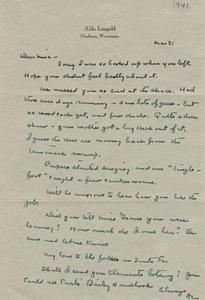 1941
Aldo Leopold
Madison, Wisconsin
Mar 31
Dear Nina -
Sorry I was so balled up when you left.
Hope you didn't feel badly about it.
We missed you no end at the shack. Had
two nice days running - saw lots of geese - but
no woodcock yet, and few ducks. Quite a deer
show - your mother got a big kick out of it.
I guess the deer are moving back from the
tamarack swamp.
Peepers started singing and our "single-
foot" caught a few
Will be anxious to hear how you like the
job.
Did you tell Miss you were
leaving? How much do I owe her? Be
sure and let me know.
My love to the folks in Santa Fe.
Shall I send you Clements Botany? You
could use Bailey Handbook
Always